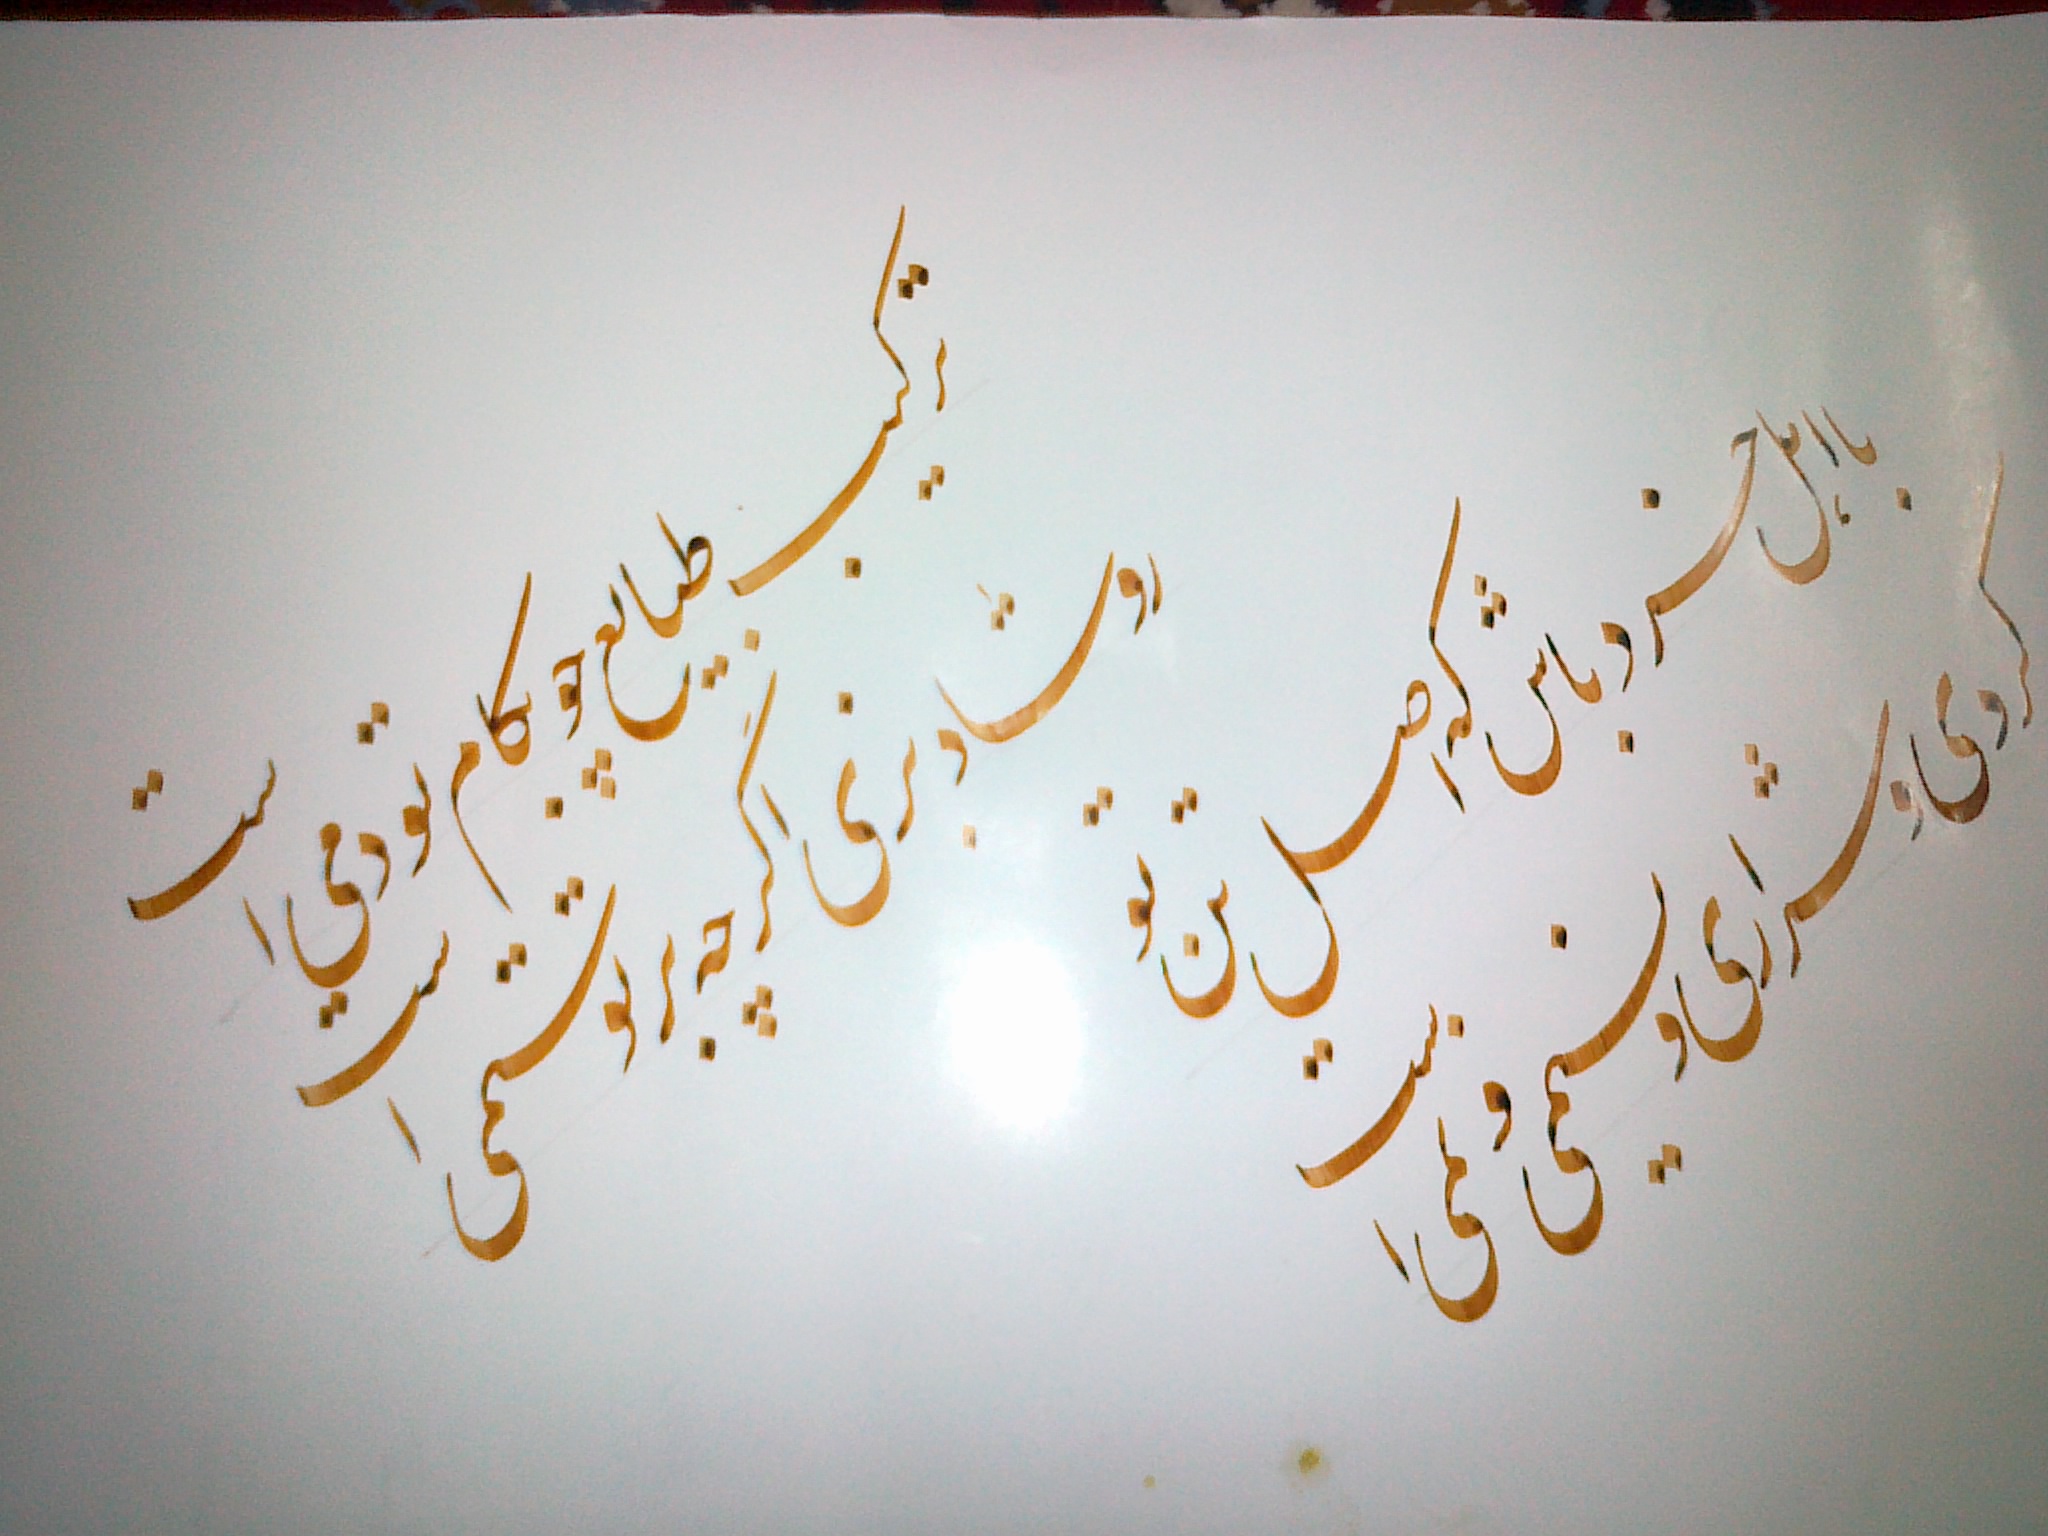 ترکیب طبایع چو بکام تو دمی است
رو شاد بزی اگر چه بر تو ستمی است
با اهل خرد باش که اصل تن تو
گردی و شراری و نسیمی و نمی است